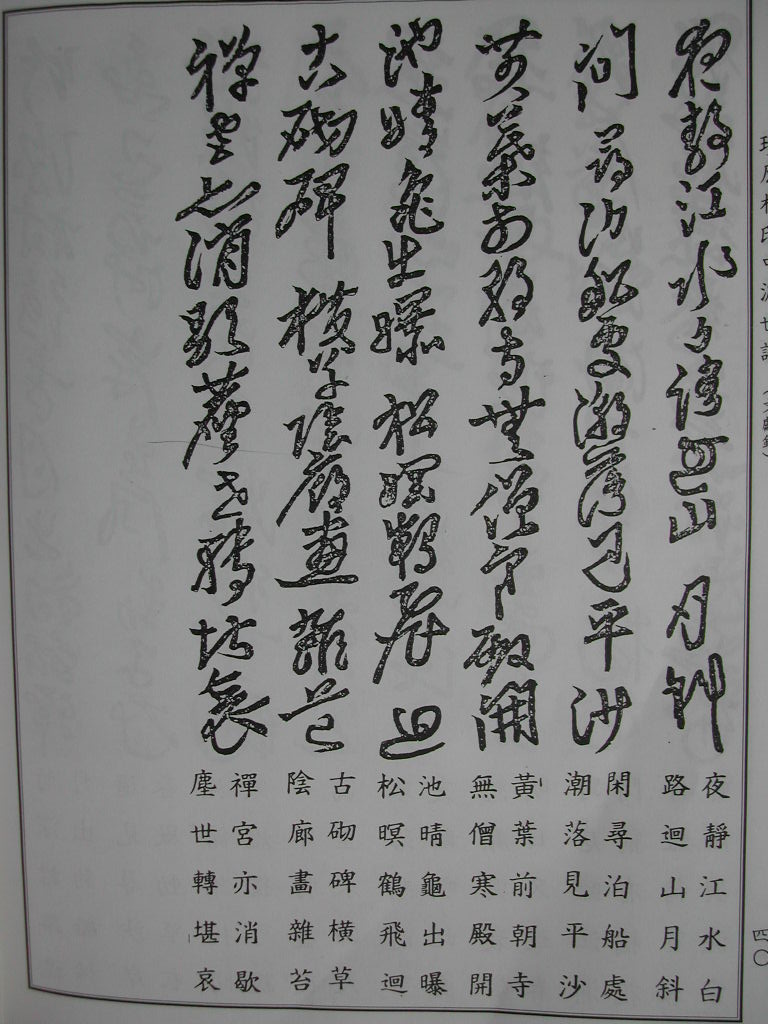 夜靜江水白路迴山月斜
閑尋泊船處潮落見平沙
黃葉前朝寺無僧寒殿開
池晴龜出曝松暝鶴飛迴
古砌碑橫草陰廊畫雜苔
禪宮亦消歇塵世轉堪哀
夜靜江水白
路迴山月斜
閑尋泊船處
潮落見平沙
黃葉前朝寺
無僧寒殿開
池晴龜出曝
松暝鶴飛迴
古砌碑橫草
陰廊畫雜苔
禪宮亦消歇
塵世轉堪哀
四〇